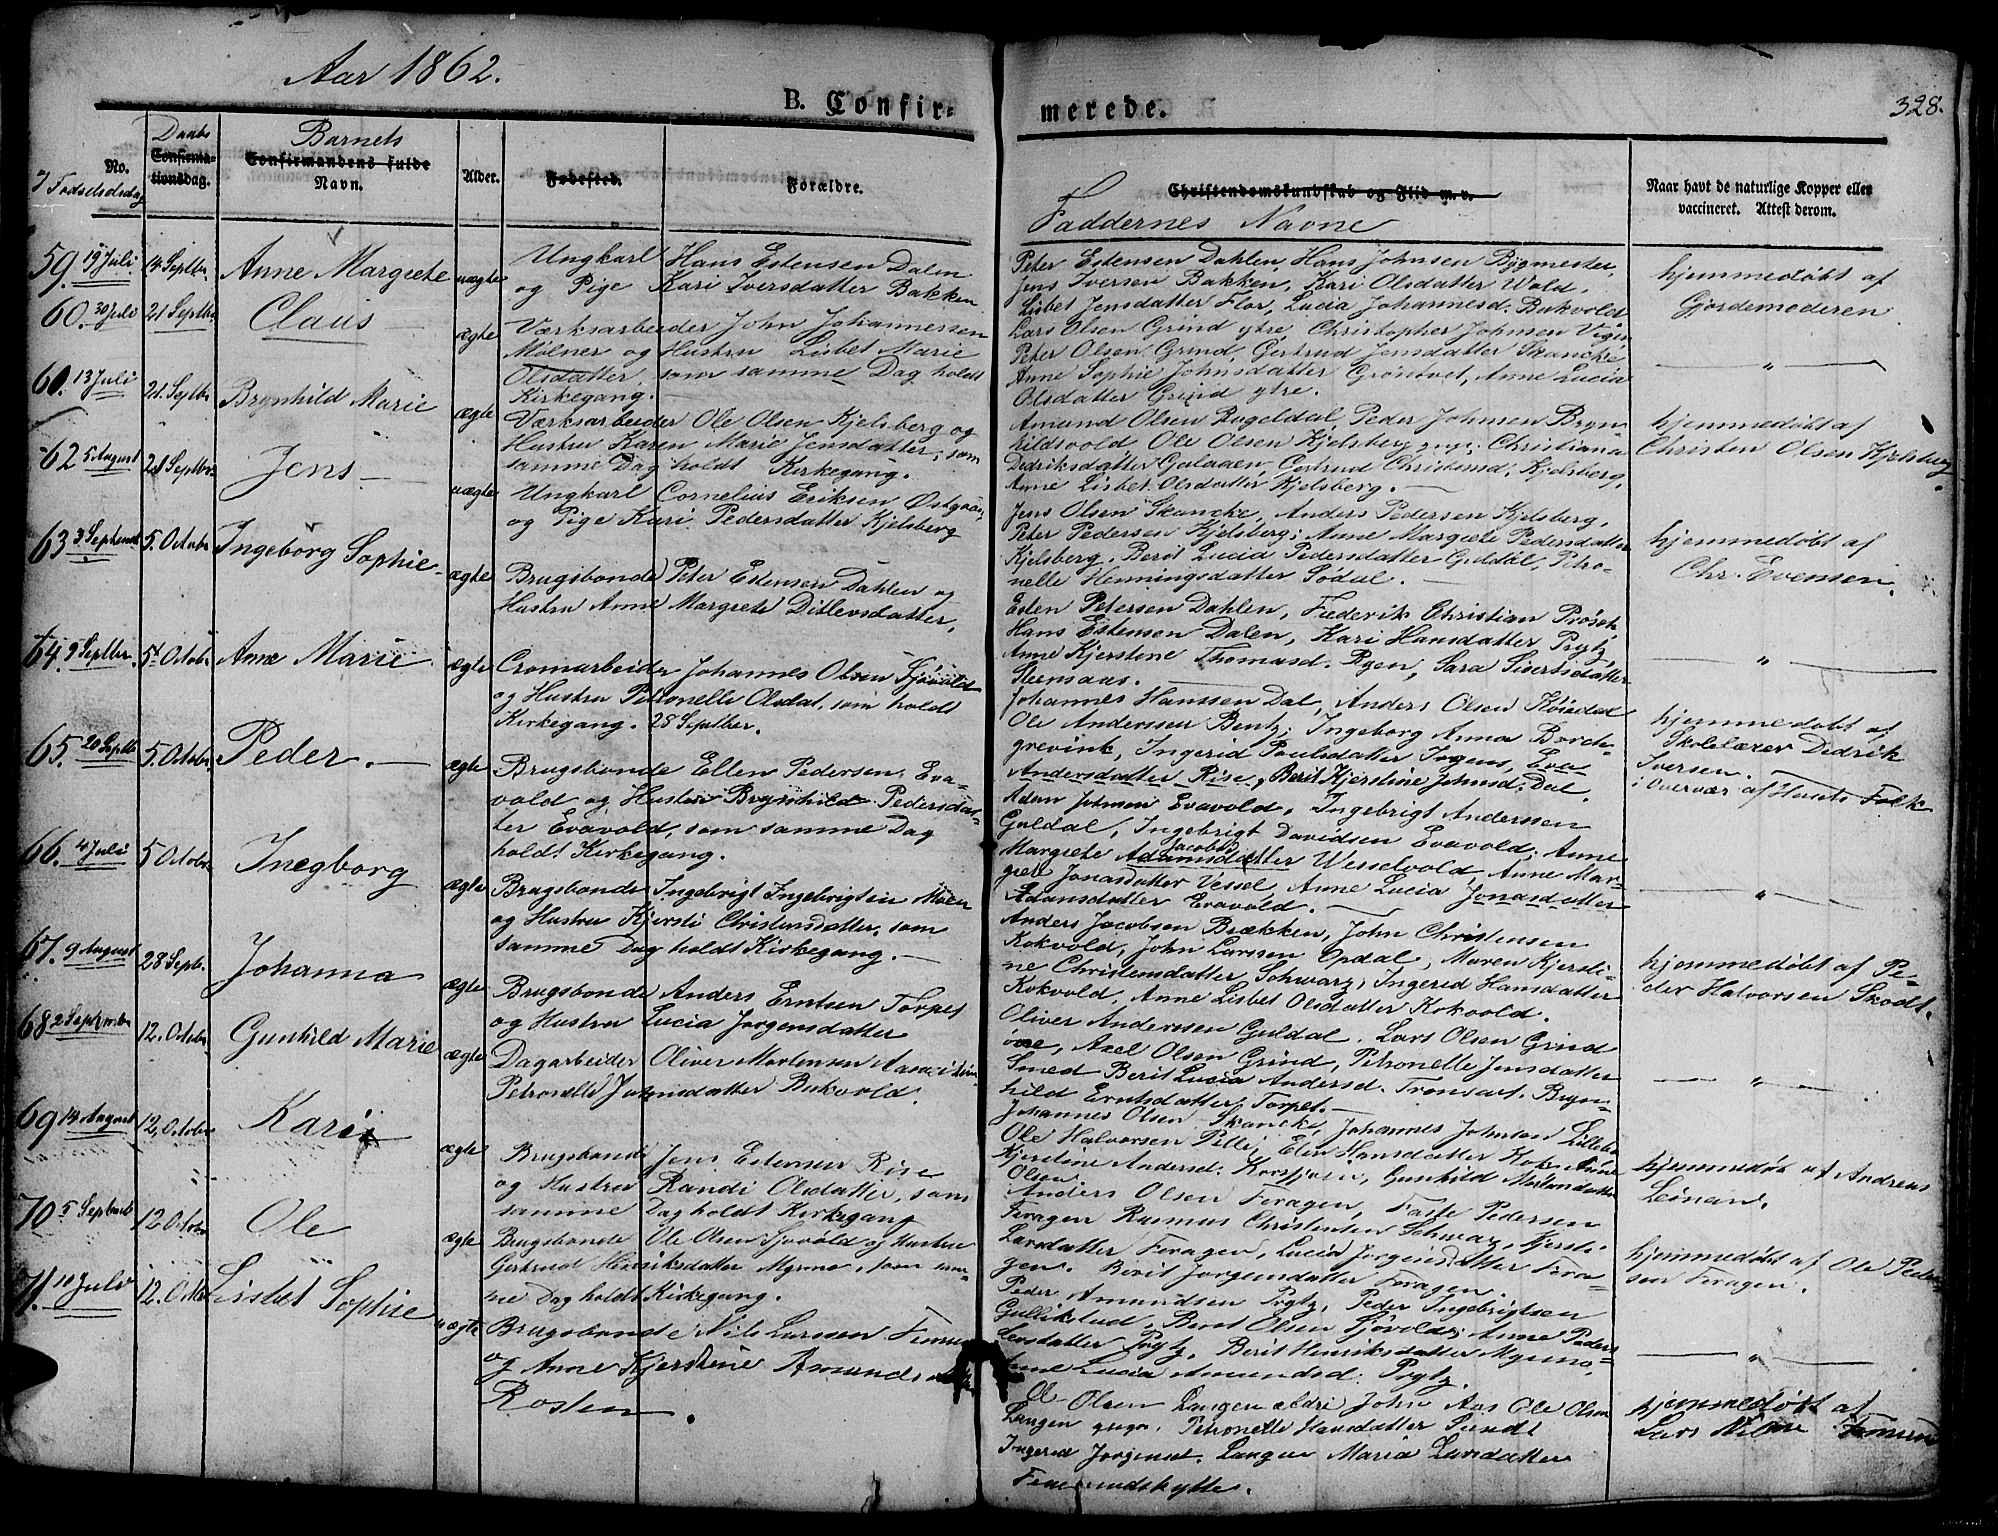 Aar 1862.
B. Confir-
merede.
328.
No.
Fødselsdag
Daabs
Confirma-
tionsdag.
Barnets
Confirmandens fulde
Navn.
Alder.
Fødested.
Forældre.
Christendomskundskab og Flid m.v.
Faddernes Navne
Naar havt de naturlige Kopper eller
vaccineret. Attest derom.
59. 19 Juli
14 Septbr.
Anne Margrete
uægte
Ungkarl Hans Estensen Dalen
og Pige Kari Iversdatter Bakken
Peter Estensen Dahlen, Hans Johnsen Bygmester,
Jens Iversen Bakken, Kari Olsdatter Wold,
Lisbet Jensdatter Flor, Lucia Johannesd. Bukvold
hjemmedøbt af
Gjordemoderen
60. 30 Juli
21 Septbr.
Claus
ægte
Værksarbeider John Johannessen
Mølner og Hustru Lisbet Marie
Olsdatter, som samme Dag holdt
Kirkegang.
Lars Olsen Grind ytre Christopher Johnsen
Peter Olsen Grind, Gertrud Jensdatter Skancke
Anne Sophie Johnsdatter Grøntvet, Anne Lucia
Olsdatter Grind ytre.
— " —
13 Juli
21. Septbr.
Brynhild Marie
ægte
Værksarbeider Ole Olsen Kjelsberg og
Hustru Karen Marie Jensdatter, som
samme Dag holdt Kirkegang.
Amund Olsen Rugeldal, Peder Johnsen Bryn-
hildsvold Ole Olsen Kjelsberg yngr; Christiana
Dedriksdatter Galaaen, Gertrud Kjelsberg,
Anne Lisbet Olsdatter Kjelsberg.
hjemmedøbt af
Christen Olsen Kjelsberg.
62 5 August
21 Septbr.
Jens
uægte
Ungkarl Cornelius Eriksen
og Pige Kari Pedersdatter Kjelsberg
Jens Olsen Skancke, Anders Pedersen Kjelsberg,
Peter Pedersen Kjelsberg; Anne Margrete Pedersdatter
Kjelsberg, Berit Lucia Pedersdatter Petro-
nelle Henningsdatter Sødal.
hjemmedøbt af
Chr. Evensen.
63 3 Septemb
5. Octobr
Ingeborg Sophie
ægte
Brugsbonde Peter Estensen Dahlen og
Hustru Anne Margrete Ditlevsdatter,
Esten Petersen Dahlen, Frederik Christian Prøsch
Hans Estensen Dalen, Kari Hansdatter Prytz,
Anne Kjerstine Thomasd. Sara Sivertsdatter
Steensaas.
— " —
64. 9 Septbr.
5t Octobr
Anne Marie
ægte
Cromarbeider Johannes Olsen Sjøvold
og Hustru Petronelle Olsdat. som holdt
Kirkegang. 28 Septber.
Johannes Hanssen Dal, Anders Olsen
Ole Anderssen Bentz; Ingeborg Anna Borch-
grevink, Ingerid Poulsdatter Eva
Andersdatter Rise, Berit Kjerstine Johnsd. Dal.
hjemmedøbt af
Skolelærer Didrik
Iversen.
i Overvær af Husets Folk
65. 20 Septb
5. Octobr.
Peder.
ægte
Brugsbonde Ellen Pedersen Eva-
vold og Hustru Brynhild Pedersdat-
ter Evavold, som samme Dag
holdt Kirkegang.
Adam Johnsen Evavold, Ingebrigt Anderssen
Guldal, Ingebrigt Davidsen Evavold; Anne
Margrete Adamsdatter Wesselvold, Anne Mar-
grete Jonasdatter Vessel, Anne Lucia Jonasdatter
Adamsdatter Evavold.
— " —
66. 4 Juli
5 Octobr
Inegborg
ægte
Brugsbonde Ingebrigt Ingebrigtsen Moen
og Hustru Kjersti Christensdatter, som
samme Dag holdt Kirkegang.
Anders Jacobsen Brækken, John Christensen
Kokvold, John Larssen Opdal, Maren Kjersti-
ne Christensdatter Schwarz, Ingerid Hansdatter
Kokvold, Anne Lisbet Olsdatter Kokvold.
hjemmedøbt af Pe-
der Halvorsen Skodt.
67. 9 August
28 Septb.
Johanna
ægte
Brugsbonde Anders Erntsen Torpet
og Hustru Lucia Jørgensdatter
Oliver Anderssen Guldal, Lars Olsen Grind
øvre, Axel Olsen Grind, Petronelle Jensdatter
Smed Berit Lucia Andersd. Tronsaet. Bryn-
hild Erntsdatter Torpet.
— " —
68 2 Septembr
12. Octobr.
Gunhild Marie
ægte
Dagarbeider Oliver Mortensen
Petronelle Johnsdatter Bukvold.
Johannes Olsen Skancke, Johannes Johnsen
Ole Halvorsen Elen Hansdatter
Kjerstine Andersd. Korssjøen, Gunhild Mortensdatter
Olsen
hjemmedøbt af Andreas
69 14 August
12. Octobr
Kari
ægte
Brugsbonde Jens Estensen Rise
og Hustru Randi Olsdatter, som
samme Dag holdt Kirkegang
Anders Olsen Feragen, Faste Pedersen
Feragen Rasmus Christensen Schwarz, Kjersti
Larsdatter Feragen, Lucia Jørgensdatter Fera-
gen. Berit Jørgensdatter Feragen.
hjemmedøbt af Ole Peder-
sen Feragen.
70 5 Septembr
12 Octobr
Ole
ægte
Brugsbonde Ole Olsen Sjøvold og Hustru
Gertrud Henriksdatter Myrmo, som sam-
me Dag holdt Kirkegang.
Peder Amundsen Prytz, Peder Ingebrigtsen
Gullikstad, Beret Olsen Sjøvold; Anne Peders-
datter Prytz, Berit Henriksdatter Myrmo,
Anne Lucia Amundsd. Prytz.
— " —
71. 10 Juli
12. Octbr
Lisbet Sophie
uægte
Brugsbonde Nils Larssen
og Anne Kjerstine
Rosten.
Ole Olsen Langen ældri John Aas Ole Olsen
Langen yngr. Petronelle Hansdatter Sundt
Ingerid Langen Maria Larsdatter
hjemmedøbt af
Lars